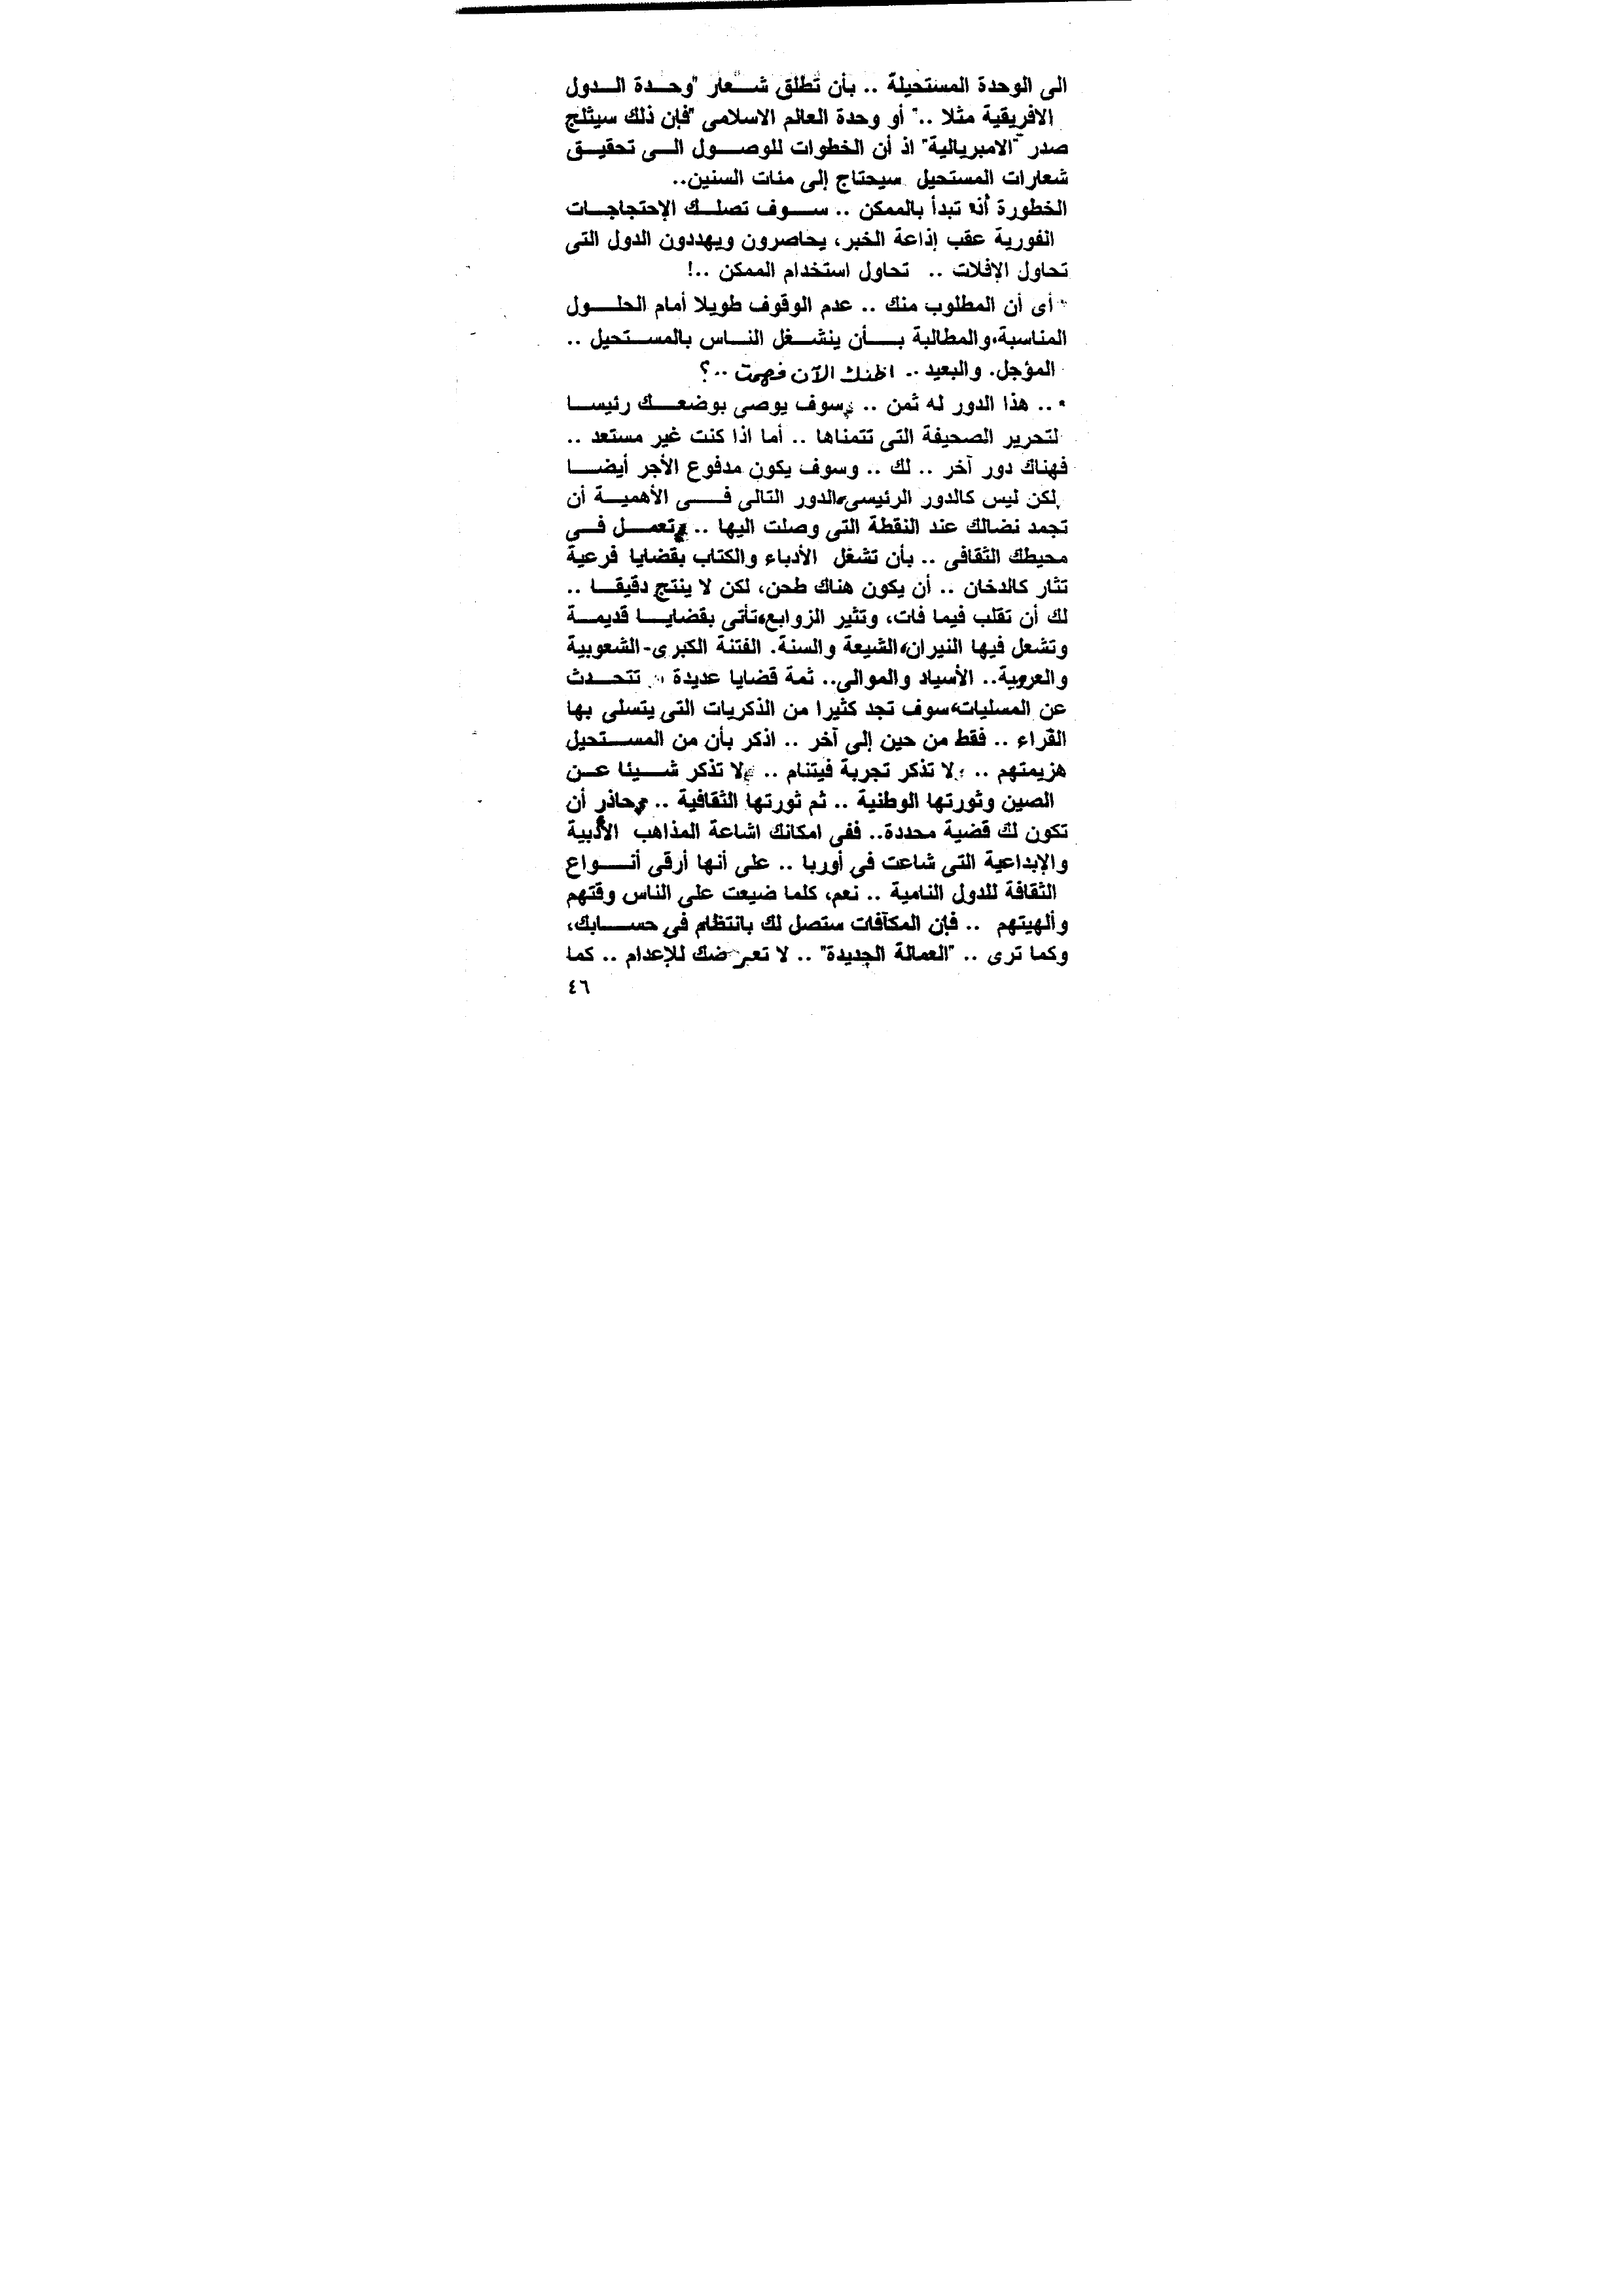 الى الوحدة المستحيلة .. بأن تطلق شعار "وحدة الدول
الافريقية مثلا .." أو وحدة العالم الاسلامى "فإن ذلك سيثلج
صدر "الامبريالية" اذ أن الخطوات للوصول الى تحقيق
شعارات المستحيل سيحتاج إلى مئات السنين..
الخطورة أنه تبدأ بالممكن .. سوف تصلك الإحتجاجات
الفورية عقب إذاعة الخبر، يحاصرون ويهددون الدول التى
تحاول الإفلات .. تحاول استخدام الممكن ..!
* أى أن المطلوب منك .. عدم الوقوف طويلا أمام الحلول
المناسبة، والمطالبة بأن ينشغل الناس بالمستحيل ..
المؤجل. والبعيد .. اظنك الآن فهمت ..؟
* .. هذا الدور له ثمن .. سوف يوصى بوضعك رئيسا
لتحرير الصحيفة التى تتمناها .. أما اذا كنت غير مستعد ..
فهناك دور آخر .. لك .. وسوف يكون مدفوع الأجر أيضا
لكن ليس كالدور الرئيسى، الدور التالى فى الأهمية أن
تجمد نضالك عند النقطة التى وصلت اليها .. تعمل فى
محيطك الثقافى .. بأن تشغل الأدباء والكتاب بقضايا فرعية
تثار كالدخان .. أن يكون هناك طحن، لكن لا ينتج دقيقا ..
لك أن تقلب فيما فات، وتثير الزوابع، تأتى بقضايا قديمة
وتشعل فيها النيران، الشيعة والسنة. الفتنة الكبرى-الشعوبية
والعروبة.. الأسياد والموالى.. ثمة قضايا عديدة تتحدث
عن المسليات، سوف تجد كثيرا من الذكريات التى يتسلى بها
القراء .. فقط من حين إلى آخر .. اذكر بأن من المستحيل
هزيمتهم .. لا تذكر تجربة فيتنام .. لا تذكر شيئا عن
الصين وثورتها الوطنية .. ثم ثورتها الثقافية .. حاذر أن
تكون لك قضية محددة.. ففى امكانك اشاعة المذاهب الأدبية
والإبداعية التى شاعت فى أوربا .. على أنها أرقى أنواع
الثقافة للدول النامية .. نعم، كلما ضيعت على الناس وقتهم
وألهيتهم .. فإن المكآفات ستصل لك بانتظام فى حسابك،
وكما ترى .. "العمالة الجديدة" .. لا تعرضك للإعدام .. كما
٤٦